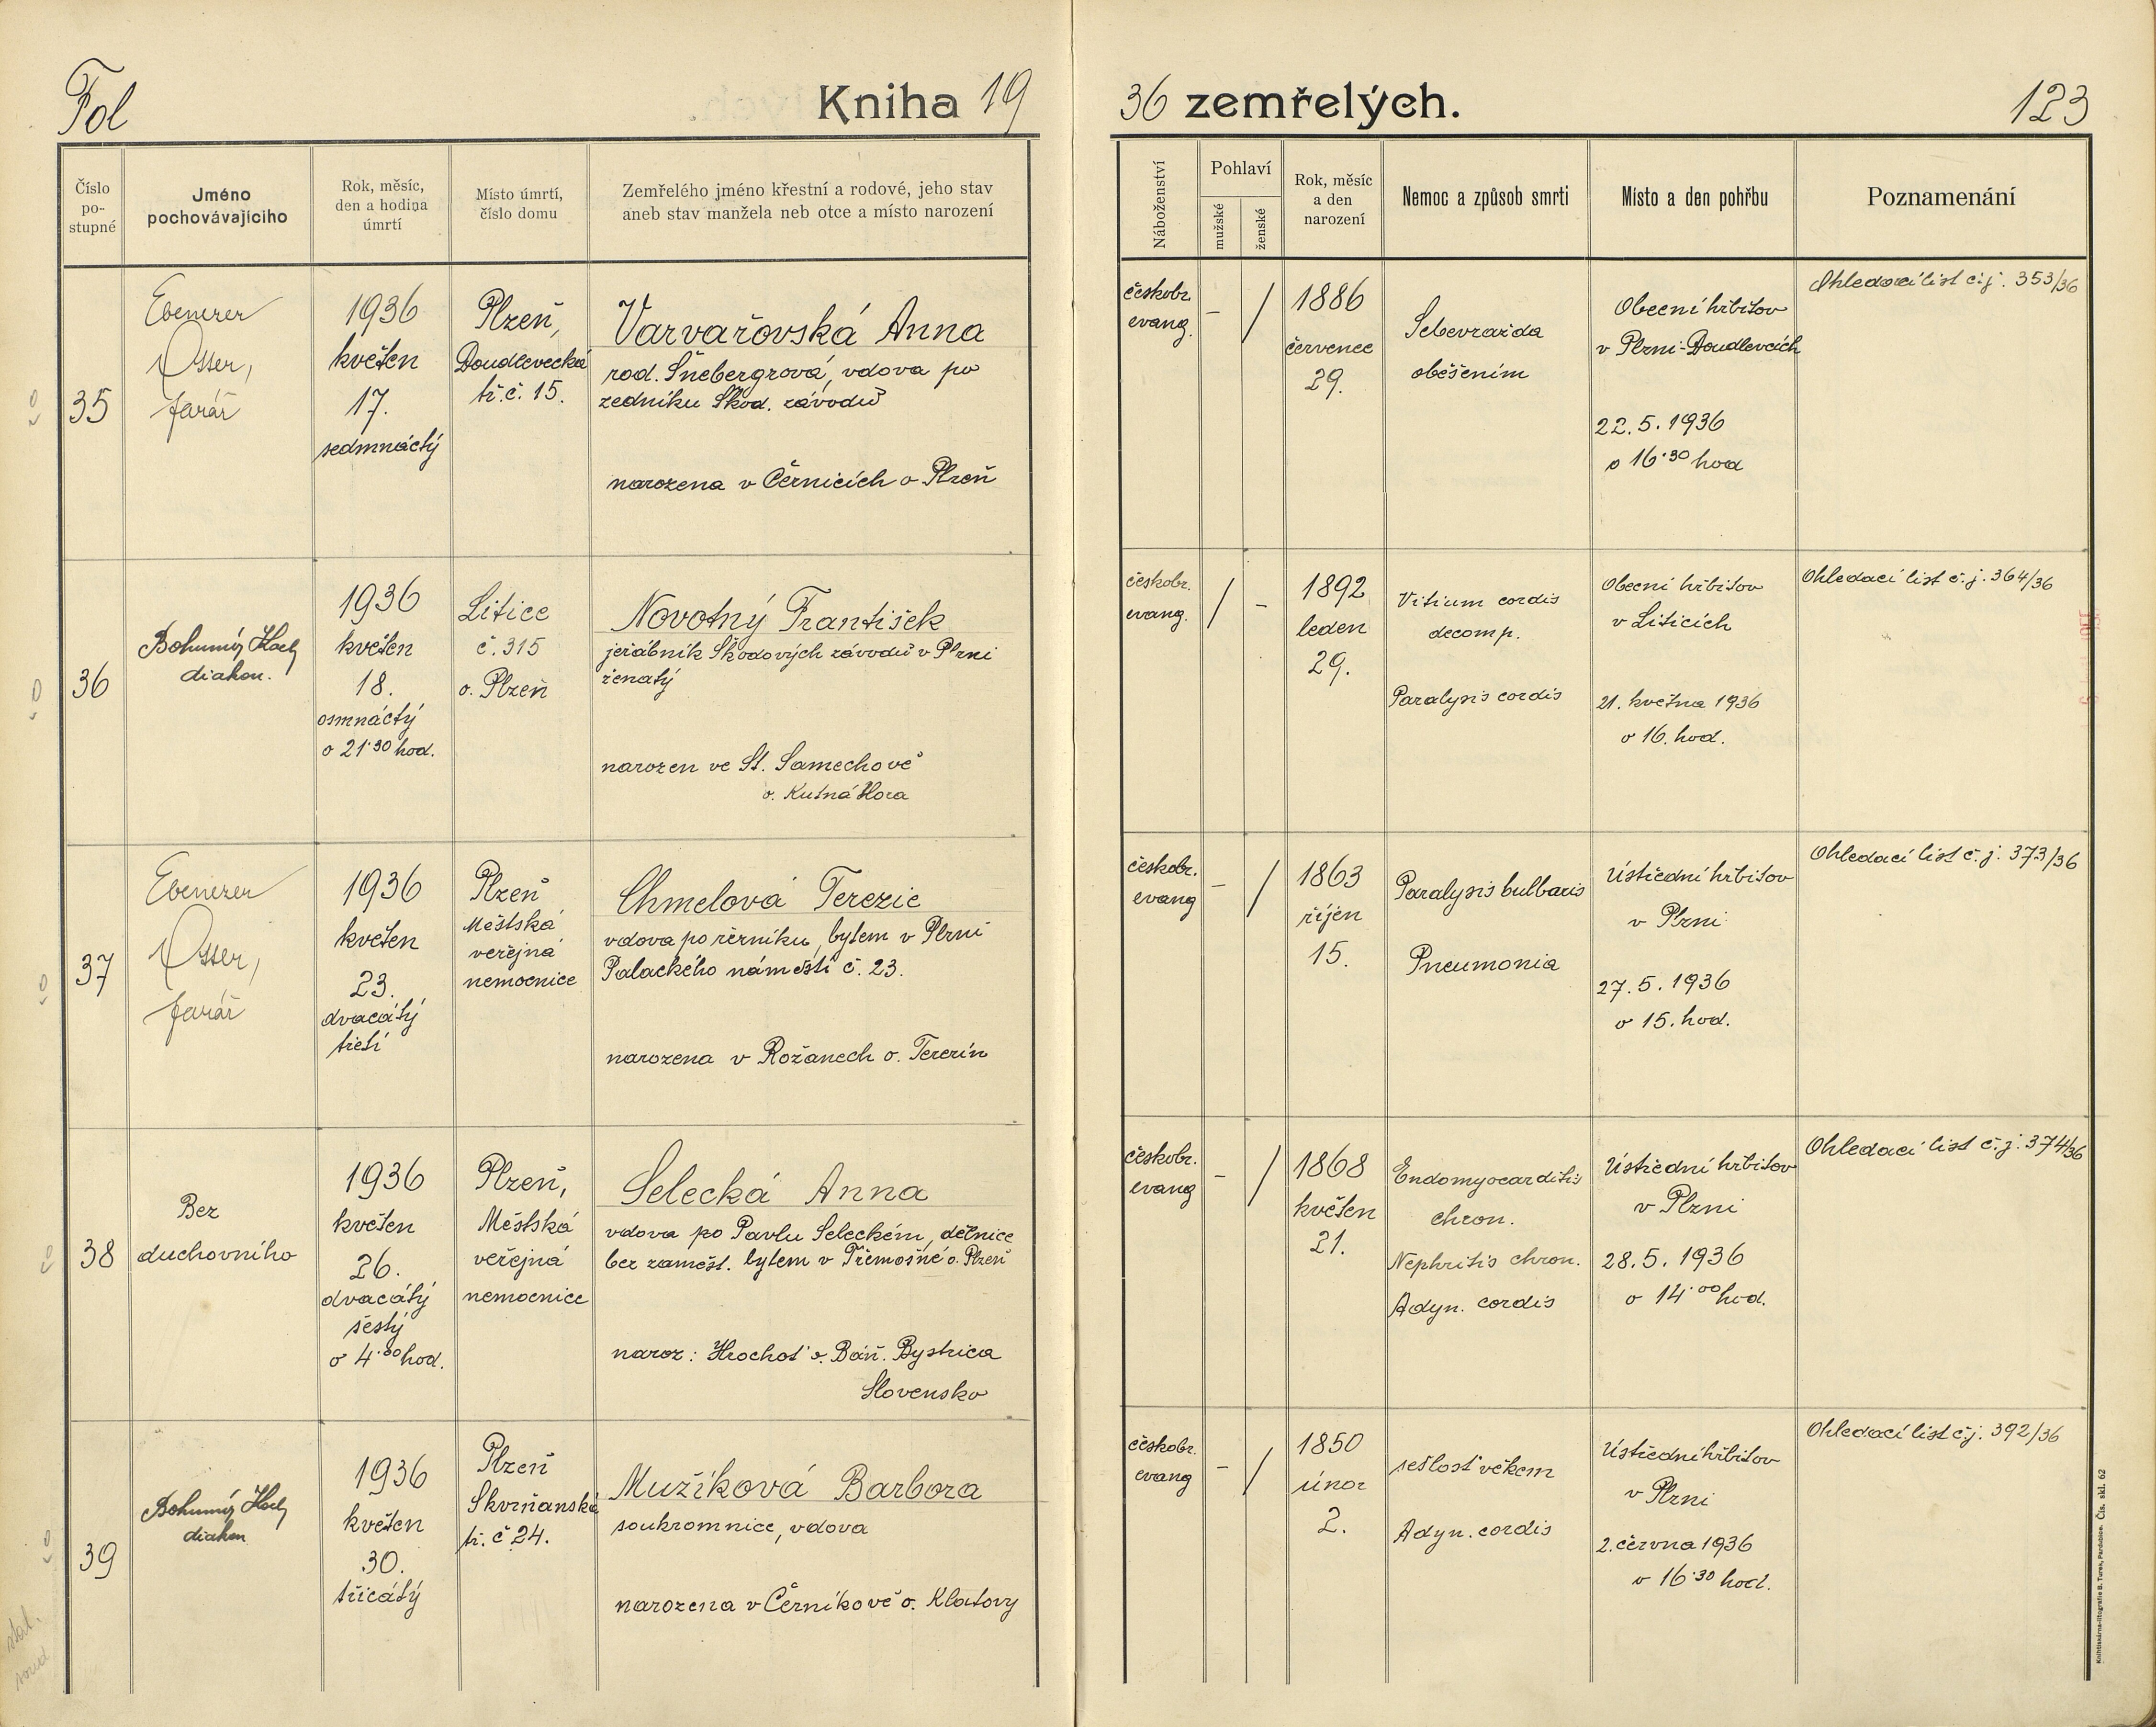 Fol
Kniha 19
36 zemřelých.
123
Číslo po-stupné
Jméno pochovávajícího
Rok, měsíc, den a hodina úmrtí
Místo úmrtí, číslo domu
Zemřelého jméno křestní a rodové, jeho stav
aneb stav manžela neb otce a místo narození
Náboženství
Pohlaví
mužské
ženské
Rok, měsíc a den narození
Nemoc a způsob smrti
Místo a den pohřbu
Poznamenání
35
Ebenezer
Otter,
farář
1936
květen
17.
sedmnáctý
Plzeň,
Doudlevecká
tř. č. 15.
Varvařovská Anna
rod. Šnebergrová, vdova po
zedníku Škod. závodů
narozena v Černicích o Plzeň
českobr.
evang.
-
/
1886
červenec
29.
Sebevražda
oběšením
Obecní hřbitov
v Plzni-Doudlevcích
22.5.1936
o 16.30 hod
Ohledací list č.j. 353/36
36
Bohumír
diakon.
1936
květen
18.
osmnáctý
o 21.30 hod.
Litice
č. 315
o. Plzeň
Novotný František
jeřábník Škodových závodů v Plzni
ženatý
narozen ve St. Samechově
o. Kutná Hora
českobr.
evang.
/
-
1892
leden
29.
Vitium cordis
decomp.
Paralysis cordis
Obecní hřbitov
v Liticích
21. května 1936
o 16. hod.
Ohledací list č.j. 364/36
37
Ebenezer
Otter,
farář
1936
květen
23.
dvacátý
třetí
Plzeň
Městská
veřejná
nemocnice
Chmelová Terezie
vdova po řezníku, bytem v Plzni
Palackého náměstí č. 23.
narozena v Rožanech o. Terezín
českobr.
evang
-
/
1863
říjen
15.
Paralysis bulbaris
Pneumonia
Ústřední hřbitov
v Plzni
27.5.1936
o 15. hod.
Ohledací list č.j. 373/36
38
Bez
duchovního
1936
květen
26.
dvacátý
šestý
o 4.00 hod.
Plzeň,
Městská
veřejná
nemocnice
Selecká Anna
vdova po Pavlu Seleckém, dělnice
bez zaměst. bytem v Třemošné o. Plzeň
naroz: Hrochoť o. Báň. Bystrica
Slovensko
českobr.
evang
-
/
1868
květen
21.
Endomyocarditis
chron.
Nephritis chron.
Adyn. cordis
Ústřední hřbitov
v Plzni
28.5.1936
o 14.00 hod.
Ohledací list č.j. 374/36
39
Bohumír
diakon
1936
květen
30.
třicátý
Plzeň
Skvrňanská
tř. č 24.
Mužíková Barbora
soukromnice, vdova
narozena v Černíkově o. Klatovy
českobr.
evang
-
/
1850
únor
2.
sešlosť věkem
Adyn. cordis
Ústřední hřbitov
v Plzni
2. června 1936
o 16.30 hod.
Ohledací list č.j. 392/36
Čís. skl. 62